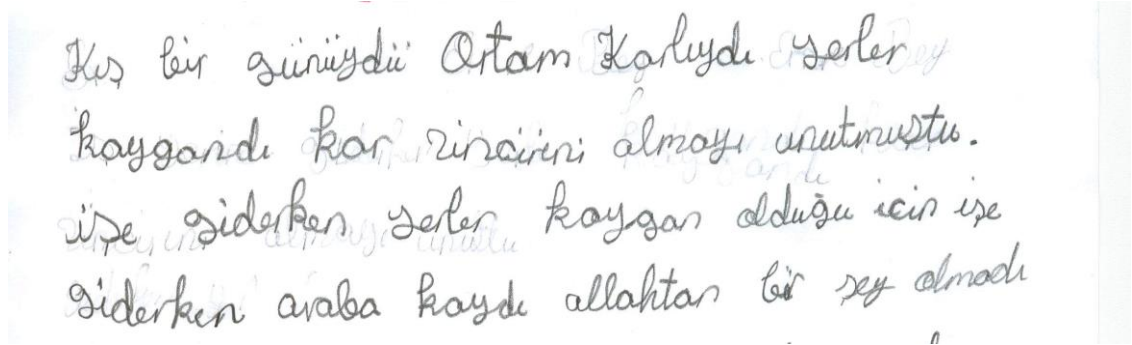 Kış bir günüydü Ortam Karlıydı yerler
kaygandı kar zincirini almayı unutmuştu.
işe giderken yerler kaygan olduğu icin işe
giderken araba kaydı allahtan bir şey olmadı